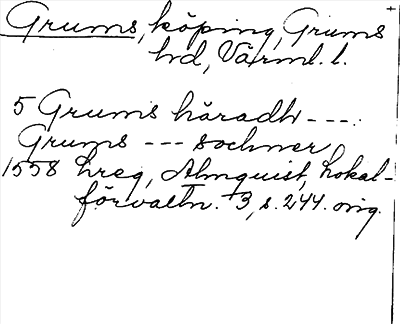 Grums, köping, Grums
hd, Värml. l.
5 Grums häradh ---.
Grums --- sochner
1558 hreg, Almquist, Lokal-
förvaltn. I 3, s. 244. orig.